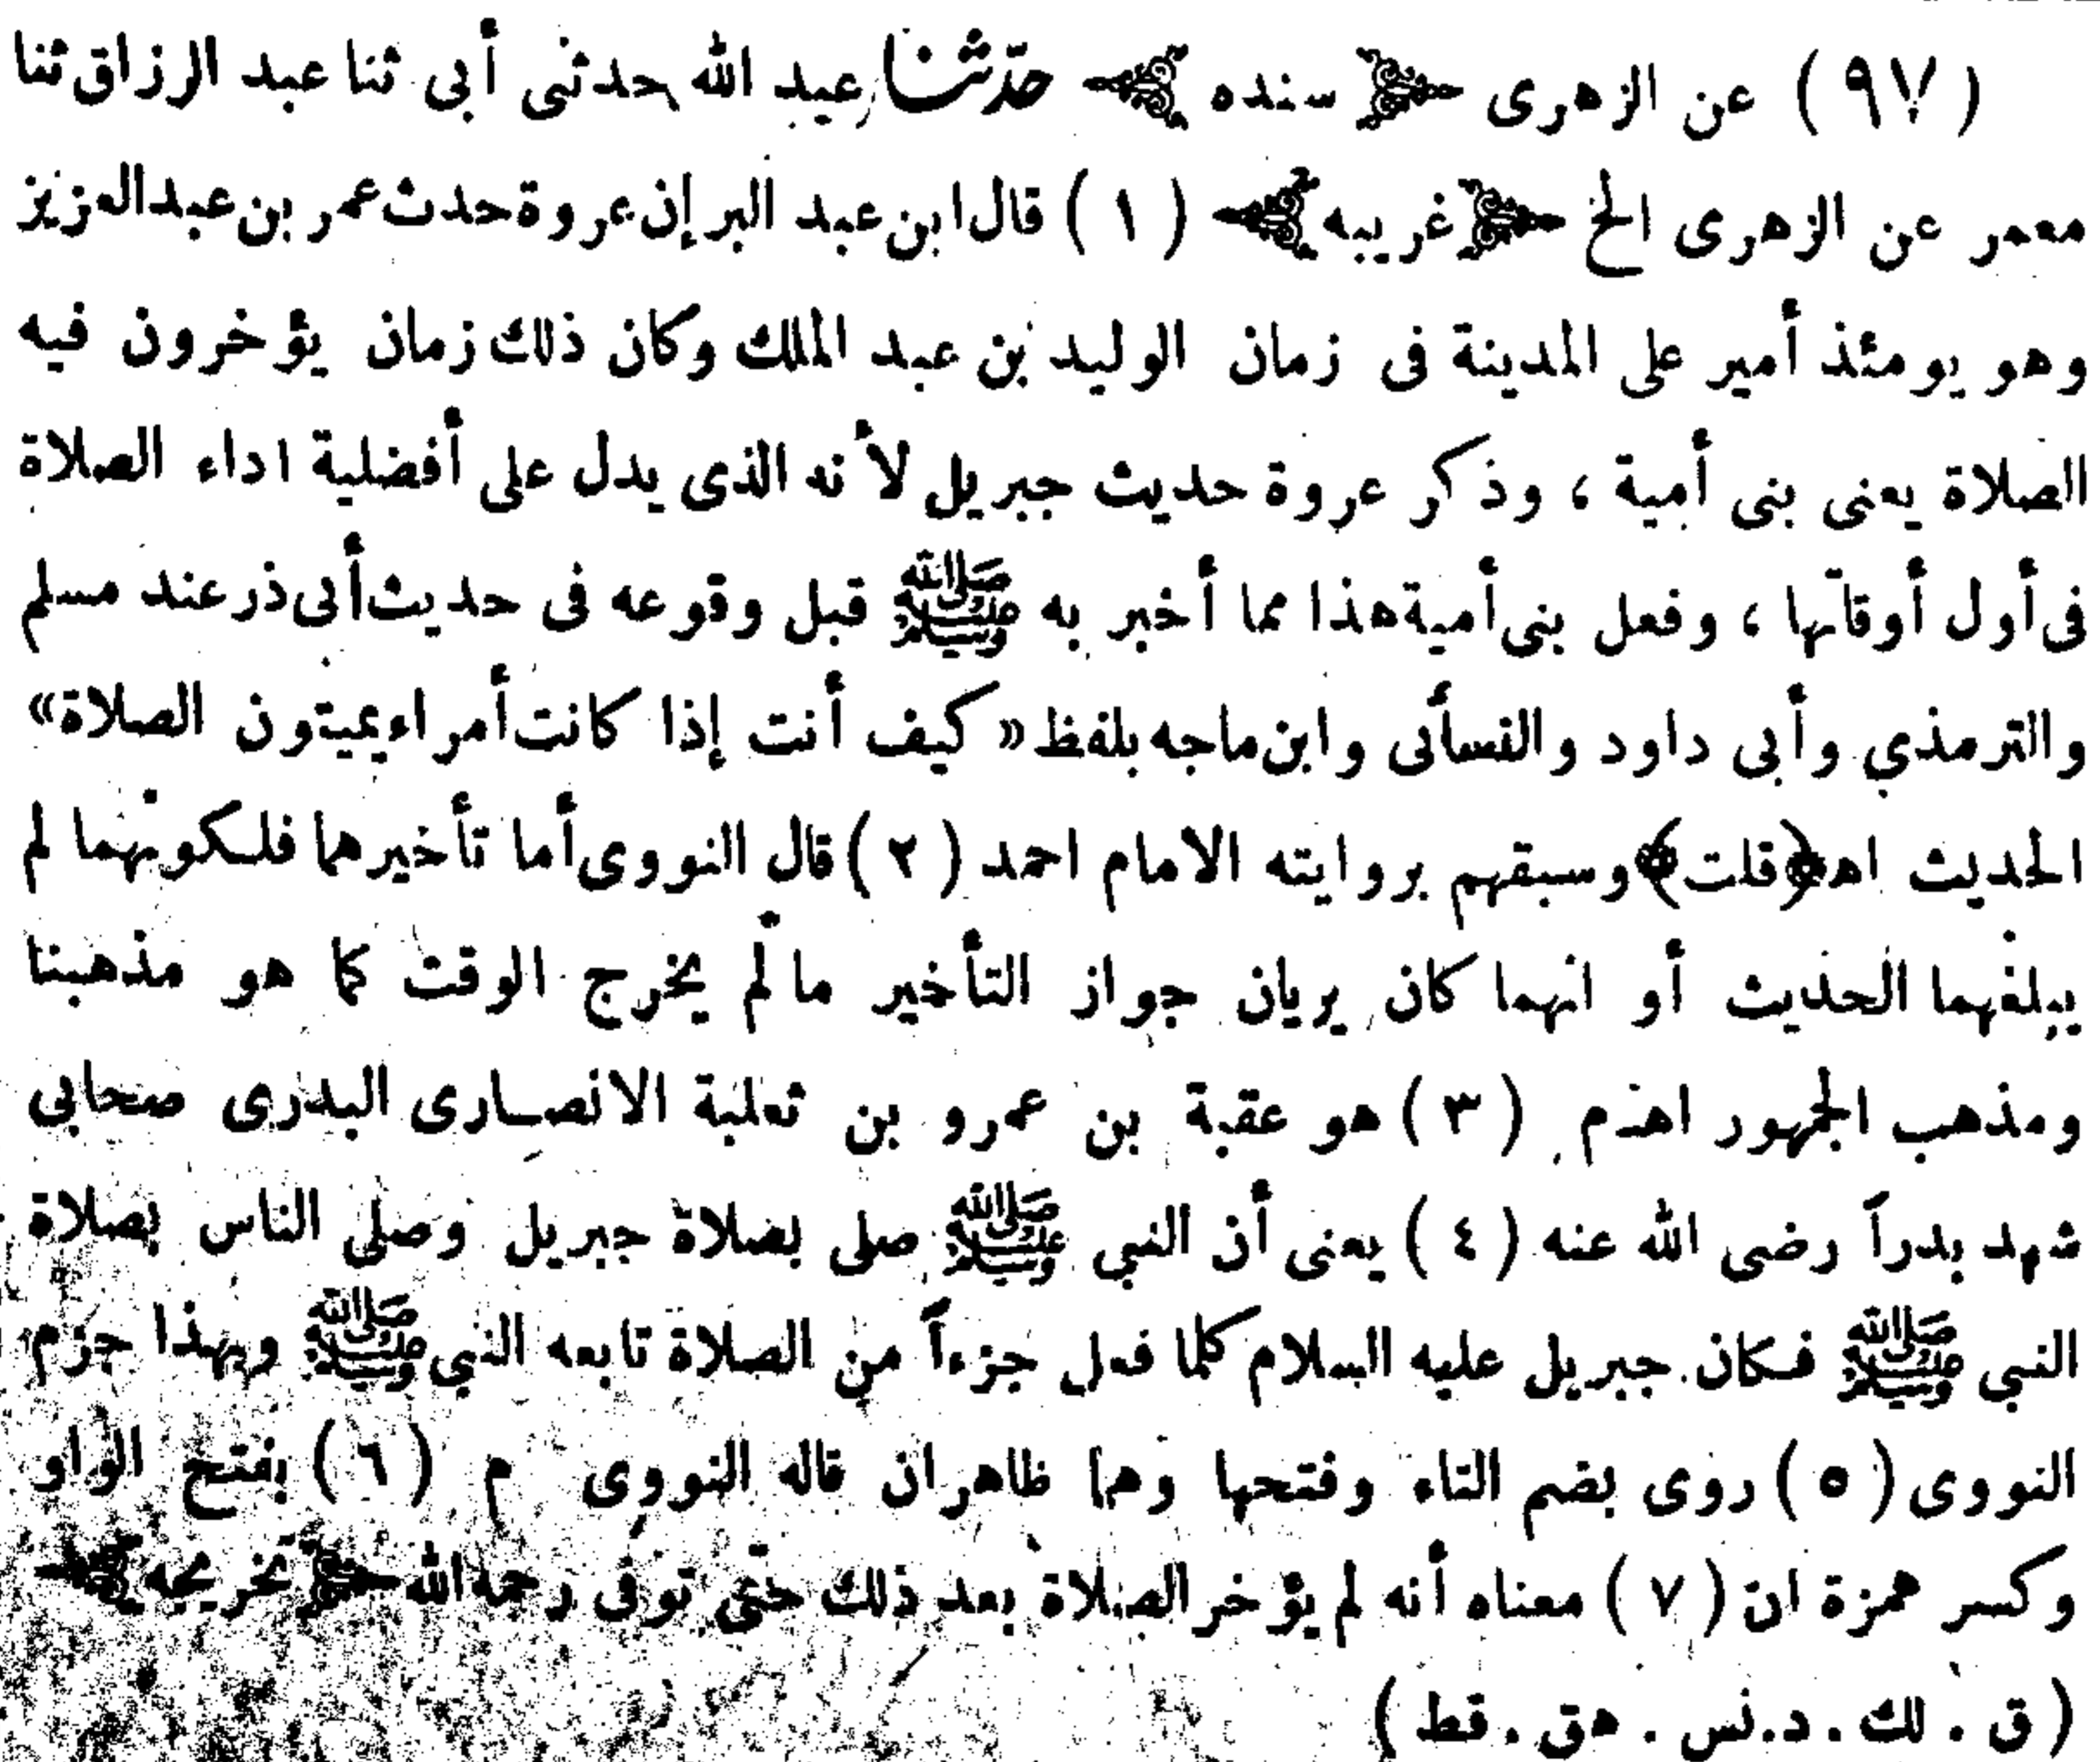 (٩٧) عن الزهرى ﴿ سنده ﴾ حدّثنا عبد الله حدثنى أبى ثنا عبد الرزاق ثنا
معمر عن الزهرى الخ ﴿ غريبه ﴾ (١) قال ابن عبد البر إن عروة حدث عمر بن عبد العزيز
وهو يومئذ أمير على المدينة فى زمان الوليد بن عبد الملك وكان ذلك زمان يؤخرون فيه
الصلاة يعنى بنى أمية ، وذكر عروة حديث جبريل لأنه الذى يدل على أفضلية اداء الصلاة
فى أول أوقاتها ، وفعل بنى أمية هذا مما أخبر به ﷺ قبل وقوعه فى حديث أبى ذر عند مسلم
والترمذي وأبى داود والنسأنى وابن ماجه بلفظ « كيف أنت إذا كانت أمراء يميتون الصلاة »
الحديث اهـ ﴿ قلت ﴾ وسبقهم بروايته الامام احمد (٢) قال النووى أما تأخيرهما فلكونهما لم
يبلغهما الحديث أو انهما كان يريان جواز التأخير مالم يخرج الوقت كما هو مذهبنا
ومذهب الجمهور اهـ م (٣) هو عقبة بن عمرو بن ثعلبة الانصارى البدرى صحابى
شهد بدراً رضى الله عنه (٤) يعنى أن النبي ﷺ صلى بصلاة جبريل وصلى الناس بصلاة
النبي ﷺ فكان جبريل عليه السلام كلما فعل جزءاً من الصلاة تابعه النبي ﷺ وبهذا جزم
النووى (٥) روى بضم التاء وفتحها وهما ظاهران قاله النووى م (٦) بفتح الواو
وكسر همزة ان (٧) معناه أنه لم يؤخر الصلاة بعد ذلك حتى توفى رحمه الله ﴿ تخريجه ﴾
(ق . لك . د . نس . هق . قط)